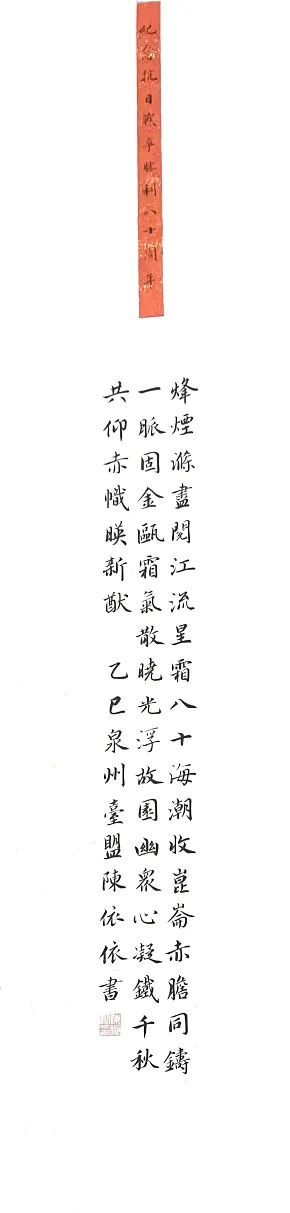 纪念抗日戰爭勝利八十周年
烽煙滌盡閱江流星霜八十海潮收崑崙赤膽同鑄
一脈固金甌霜氣散曉光浮故園幽眾心凝鐵千秋
共仰赤幟暎新猷 乙巳泉州臺盟陳依依書